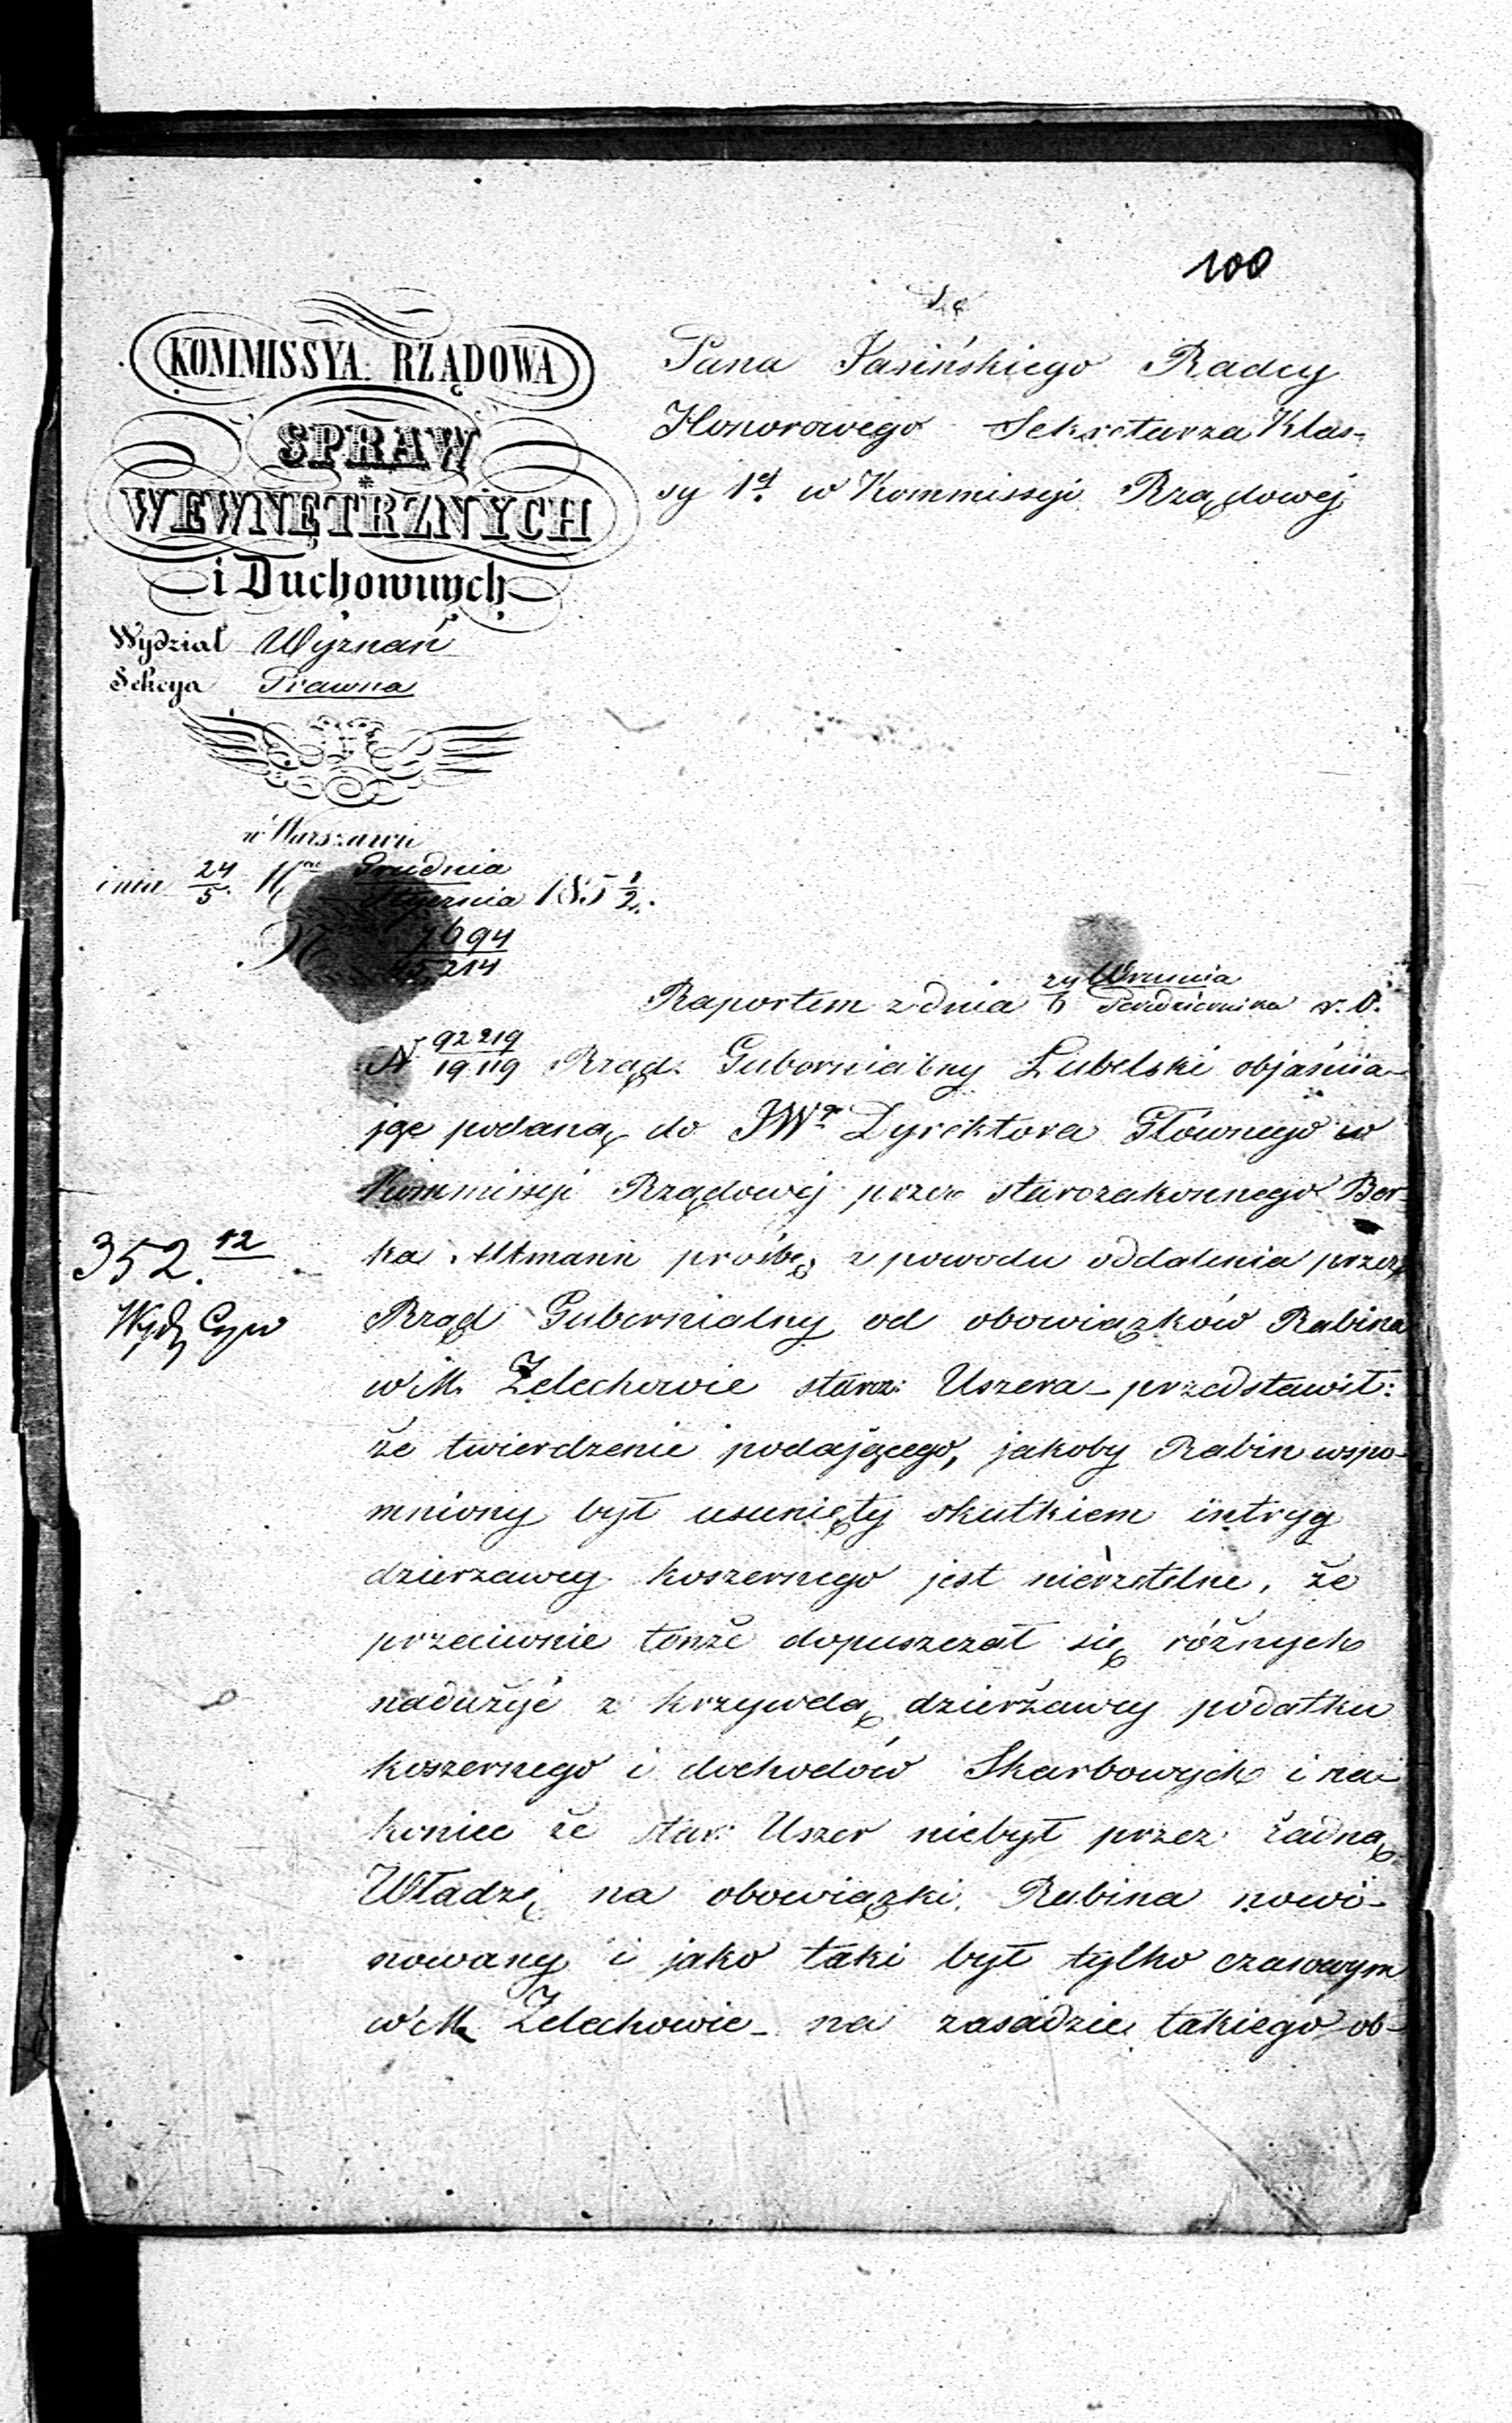 100
Do
KOMMISSYA RZĄDOWA
SPRAW
WEWNĘTRZNYCH
i Duchownych
Wydział Wyznań
Sekcya Prawna
w Warszawie
dnia 24/5 Grudnia/Stycznia 185 1/2.
N 7694/45214
Pana Jasińskiego Radcy
Honorowego Sekretarza Klas-
sy 1ej w Kommissyi Rządowej
Raportem z dnia 24/6 Września/Października r. b.
N 92219/19119 Rząd Gubernialny Lubelski objaśnia-
jąc podaną do JWo Dyrektora Głównego w
Kommissyi Rządowej przez starozakonnego Ber-
ka Altmann prośbę z powodu oddalenia przez
Rząd Gubernialny od obowiązków Rabina
w M. Żelechowie staroz: Uszera - przedstawił:
że twierdzenie podającego, jakoby Rabin wspo-
mniony był usunięty skutkiem intryg
dzierzawcy koszernego jest nierzetelne, że
przeciwnie tenże dopuszczał się różnych
nadużyć z krzywdą dzierżawcy podatku
koszernego i dochodów Skarbowych i na-
koniec że star: Uszer niebył przez żadną
Władzę na obowiązki Rabina nomi-
nowany i jako taki był tylko czasowym
w M. Żelechowie - na zasadzie takiego ob-
352. 12
Wydz Cyw